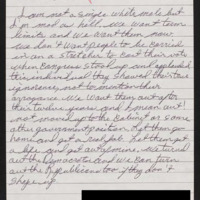 I am not a single white male but
I'm mad as hell. We want term
limits and we want them now
We don't want people to be carried
in on a stretcher to cast their vote
when Congress stood up and applauded
this individual they showed their true
ignorance, not to mention their
arrogance. We want them out after
their twelve years and forever out!
not moved up to the Cabinet or some
other government position. Let them go
home and get a real job. Let them get
a life and get out of mine. We turned
out the Democrats and we can turn
out the Republicans too if they don't
shape up.